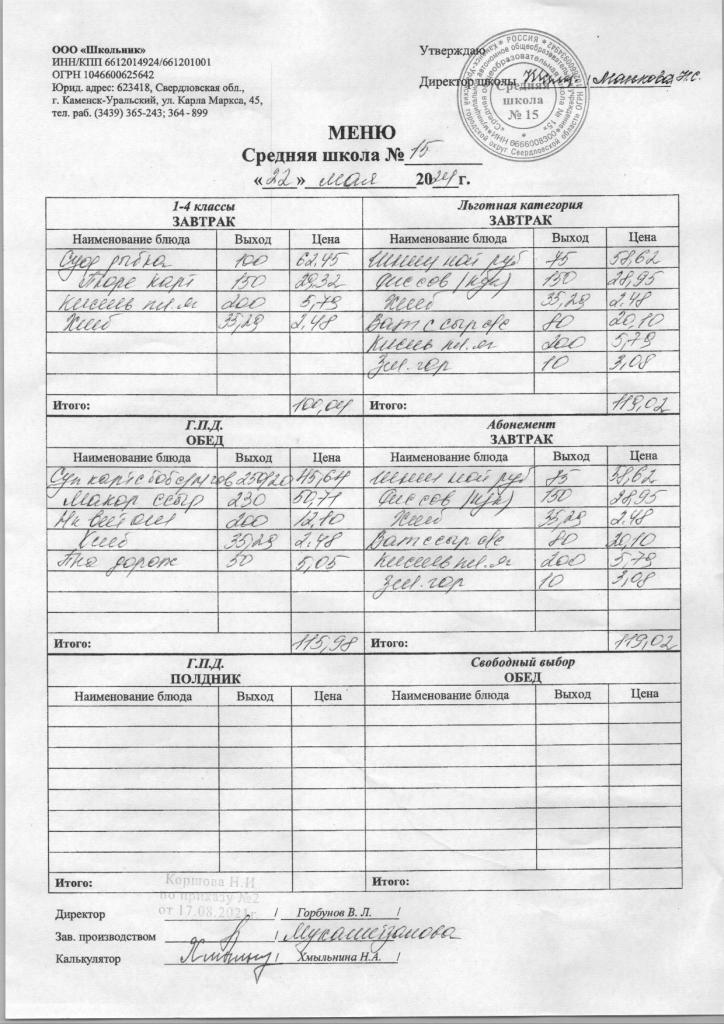 ООО «Школьник»
ИНН/КПП 6612014924/661201001
ОГРН 1046600625642
Юрид. адрес: 623418, Свердловская обл.,
г. Каменск-Уральский, ул. Карла Маркса, 45,
тел. раб. (3439) 365-243; 364 - 899
Утверждаю
Директор школы / Манкова Н.С.
РОССИЯ
Средняя
школа
№ 15
МЕНЮ
Средняя школа № 15
«22» мая 2024 г.
1-4 классы
ЗАВТРАК
Наименование блюда Выход Цена
Суфле рыбн 100 62,45
Пюре карт 150 29,32
Кисель пл.я 200 5,79
Хлеб 35,29 2,48
Итого: 100,04
Льготная категория
ЗАВТРАК
Наименование блюда Выход Цена
руб 75 58,62
150 28,95
Хлеб 35,29 2,48
Ват с сыр 80 20,10
Кисель пл.я 200 5,79
Зел. гор 10 3,08
Итого: 119,02
Г.П.Д.
ОБЕД
Наименование блюда Выход Цена
Суп карт с боб 250/20 45,64
Макар с сыр 230 50,71
200 12,10
Хлеб 35,29 2,48
дорож 50 5,05
Итого: 115,98
Абонемент
ЗАВТРАК
Наименование блюда Выход Цена
руб 75 58,62
150 28,95
Хлеб 35,29 2,48
Ват с сыр 80 20,10
Кисель пл.я 200 5,79
Зел. гор 10 3,08
Итого: 119,02
Г.П.Д.
ПОЛДНИК
Наименование блюда Выход Цена
Итого:
Свободный выбор
ОБЕД
Наименование блюда Выход Цена
Итого:
Коршова Н.И
по приказу №2
от 17.08.2021г.
Директор / Горбунов В. Л. /
Зав. производством / Мухаметзанова
Калькулятор / Хмыльнина Н.А. /